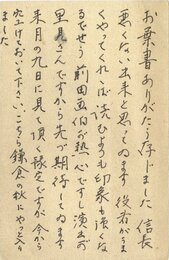 お葉書ありがたう存じました 信長
悪くない出来と思ってゐます 役者がうま
くやってくれゝば 読むよりも印象も強くな
るでせう 前田画伯が熱心ですし演出が
里見さんですから先づ期待してゐます
来月の九日に見て頂く豫定ですが今から
空けておいて下さい、こちら鎌倉の秋にやっと入り
ました